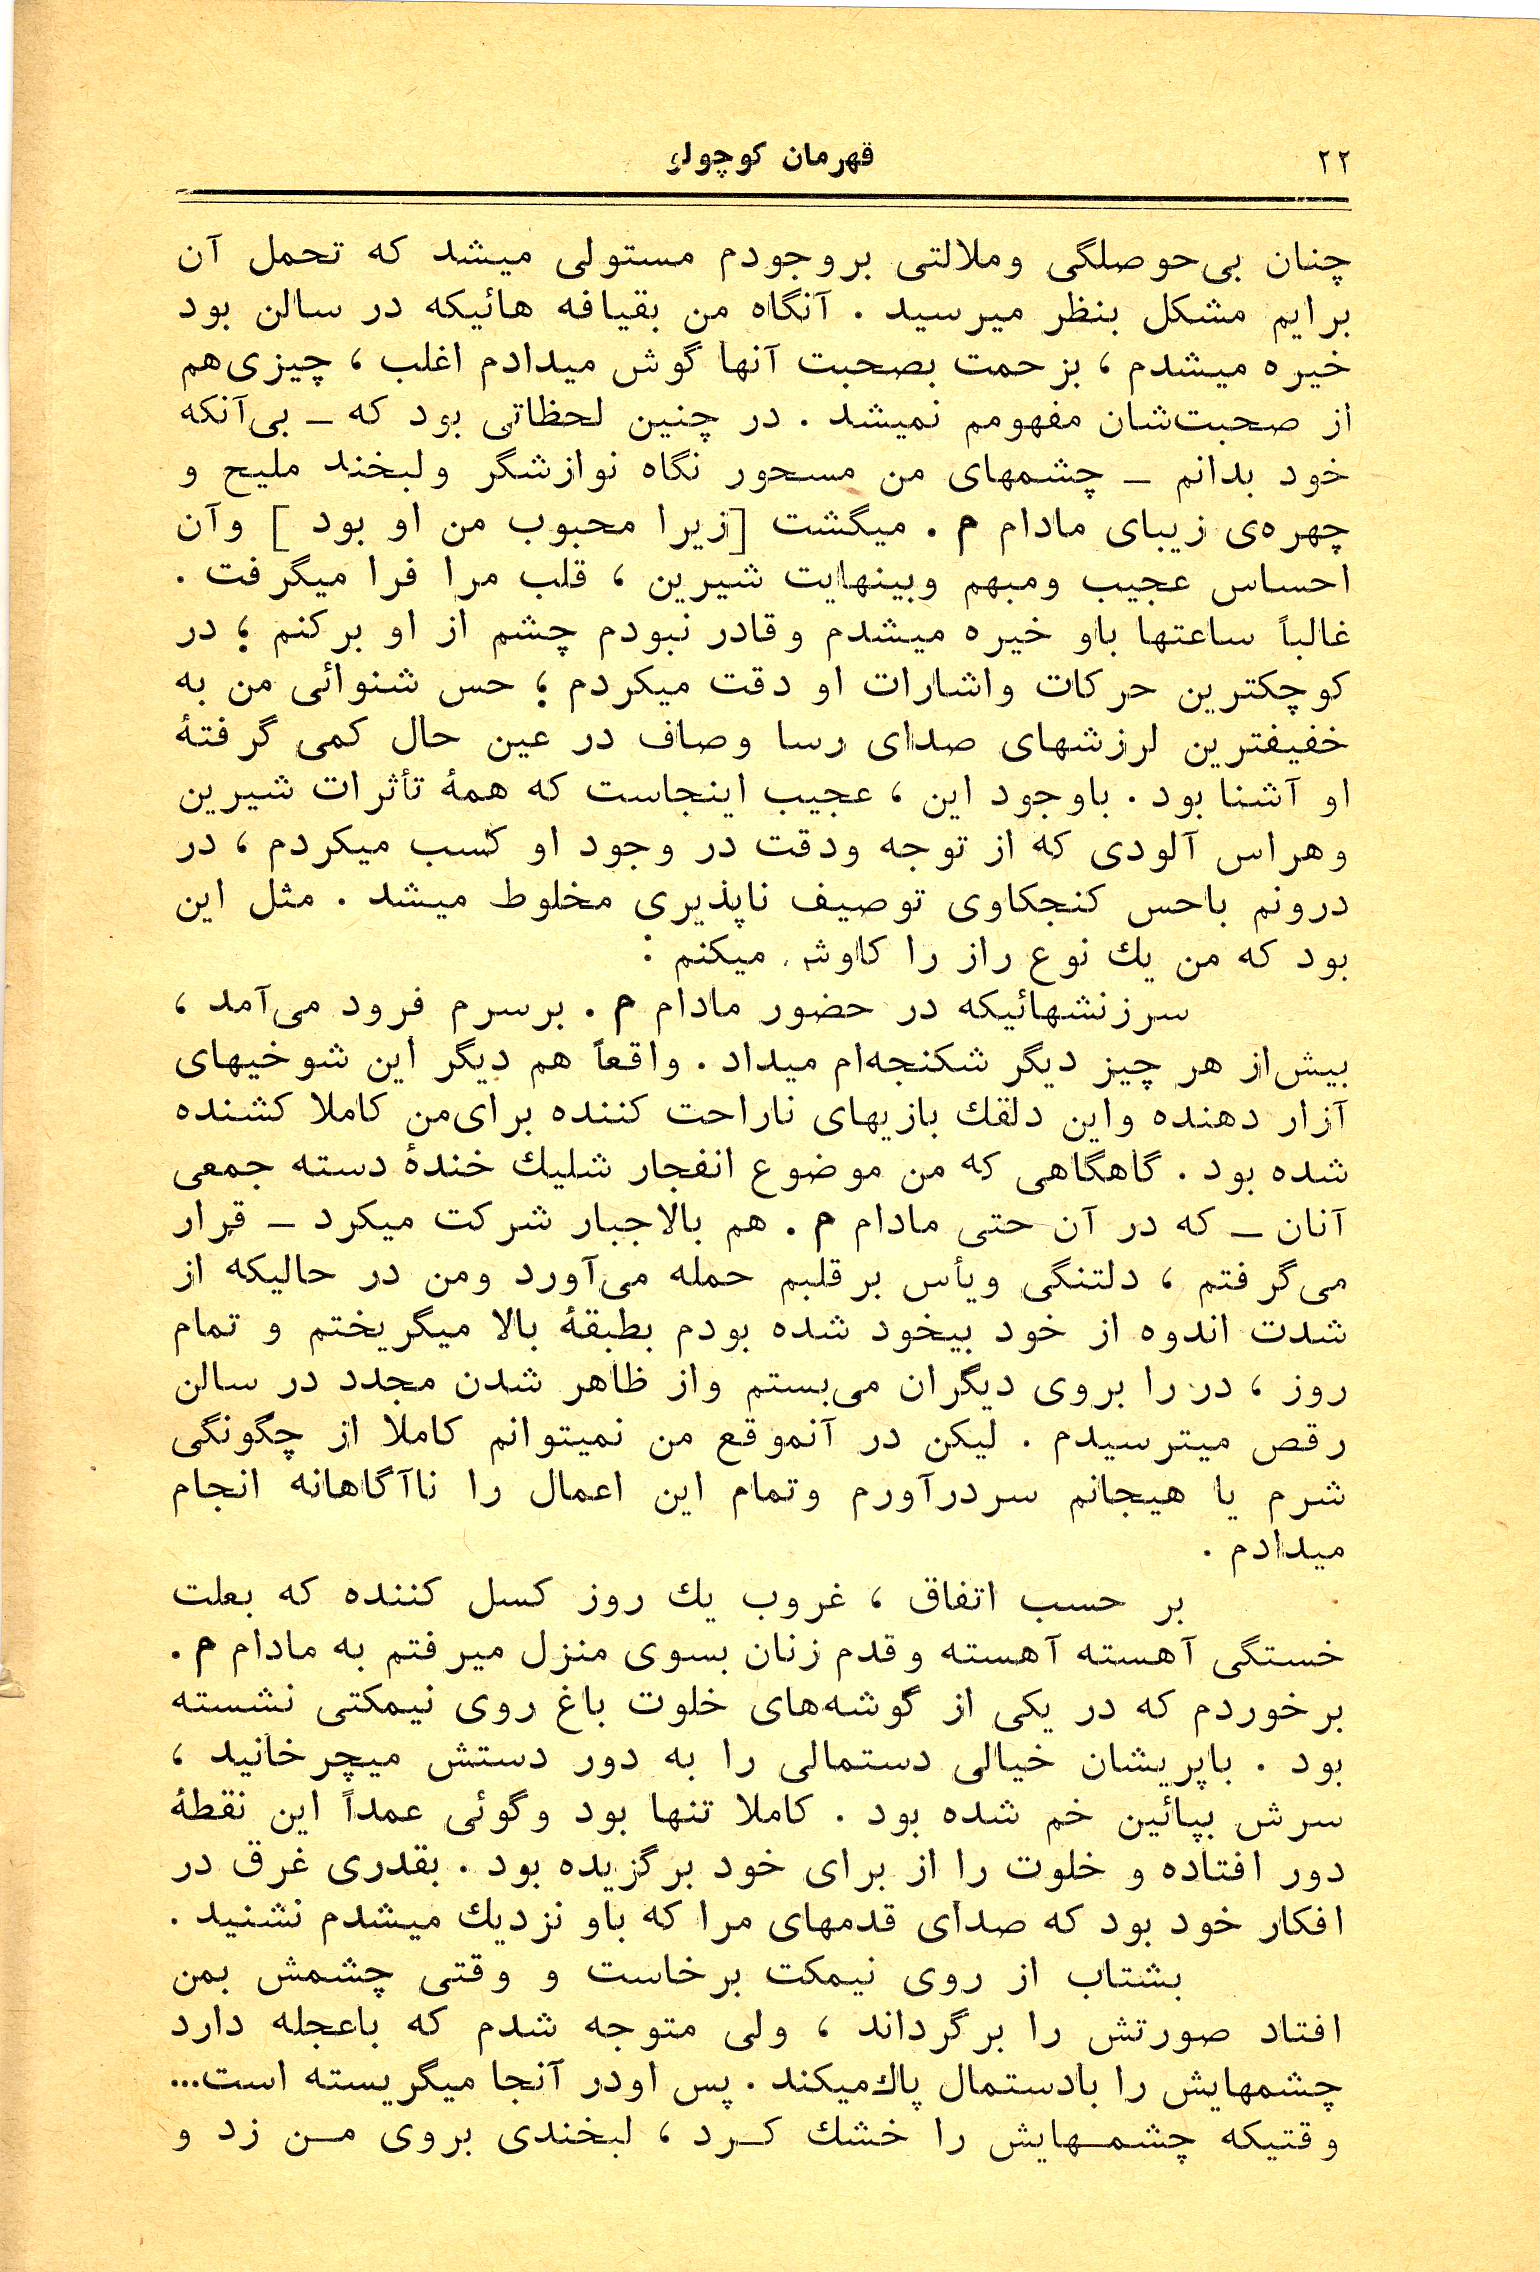 ۲۲
قهرمان کوچولو
چنان بی‌حوصلگی وملالتی بروجودم مستولی میشد که تحمل آن
برایم مشکل بنظر میرسید . آنگاه من بقیافه هائیکه در سالن بود
خیره میشدم ، بزحمت بصحبت آنها گوش میدادم اغلب ، چیزی‌هم
از صحبت‌شان مفهومم نمیشد . در چنین لحظاتی بود که ـ بی‌آنکه
خود بدانم ـ چشمهای من مسحور نگاه نوازشگر ولبخند ملیح و
چهره‌ی زیبای مادام م . میگشت [زیرا محبوب من او بود ] وآن
احساس عجیب ومبهم وبینهایت شیرین ، قلب مرا فرا میگرفت .
غالباً ساعتها باو خیره میشدم وقادر نبودم چشم از او برکنم ؛ در
کوچکترین حرکات واشارات او دقت میکردم ؛ حس شنوائی من به
خفیفترین لرزشهای صدای رسا وصاف در عین حال کمی گرفتهٔ
او آشنا بود . باوجود این ، عجیب اینجاست که همهٔ تأثرات شیرین
وهراس آلودی که از توجه ودقت در وجود او کسب میکردم ، در
درونم باحس کنجکاوی توصیف ناپذیری مخلوط میشد . مثل این
بود که من یك نوع راز را کاوش میکنم :
سرزنشهائیکه در حضور مادام م . برسرم فرود می‌آمد ،
بیش‌از هر چیز دیگر شکنجه‌ام میداد . واقعاً هم دیگر این شوخیهای
آزار دهنده واین دلقك بازیهای ناراحت کننده برای‌من کاملا کشنده
شده بود . گاهگاهی که من موضوع انفجار شلیك خندهٔ دسته جمعی
آنان ـ که در آن حتی مادام م . هم بالاجبار شرکت میکرد ـ قرار
می‌گرفتم ، دلتنگی ویأس برقلبم حمله می‌آورد ومن در حالیکه از
شدت اندوه از خود بیخود شده بودم بطبقهٔ بالا میگریختم و تمام
روز ، در را بروی دیگران می‌بستم واز ظاهر شدن مجدد در سالن
رقص میترسیدم . لیکن در آنموقع من نمیتوانم کاملا از چگونگی
شرم یا هیجانم سردرآورم وتمام این اعمال را ناآگاهانه انجام
میدادم .
بر حسب اتفاق ، غروب یك روز کسل کننده که بعلت
خستگی آهسته آهسته وقدم زنان بسوی منزل میرفتم به مادام م .
برخوردم که در یکی از گوشه‌های خلوت باغ روی نیمکتی نشسته
بود . باپریشان خیالی دستمالی را به دور دستش میچرخانید ،
سرش بپائین خم شده بود . کاملا تنها بود وگوئی عمداً این نقطهٔ
دور افتاده و خلوت را از برای خود برگزیده بود . بقدری غرق در
افکار خود بود که صدای قدمهای مرا که باو نزدیك میشدم نشنید .
بشتاب از روی نیمکت برخاست و وقتی چشمش بمن
افتاد صورتش را برگرداند ، ولی متوجه شدم که باعجله دارد
چشمهایش را بادستمال پاك‌میکند . پس اودر آنجا میگریسته است...
وقتیکه چشمـهایش را خشك کـرد ، لبخندی بروی مـن زد و